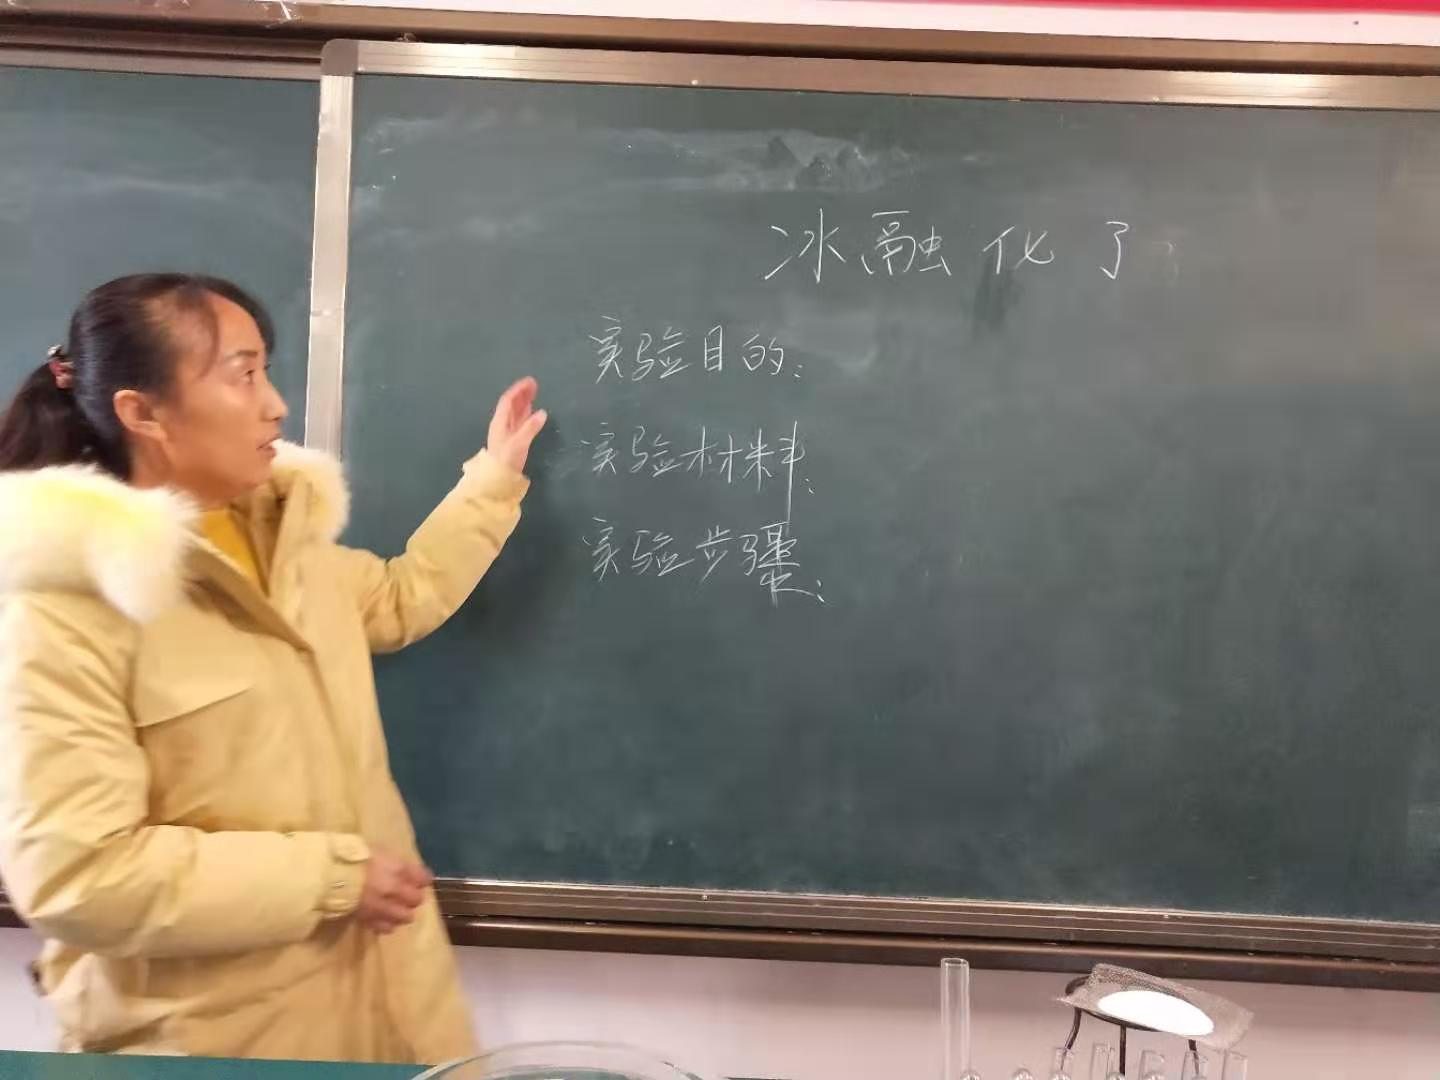 冰融化了
实验目的:
实验材料:
实验步骤: